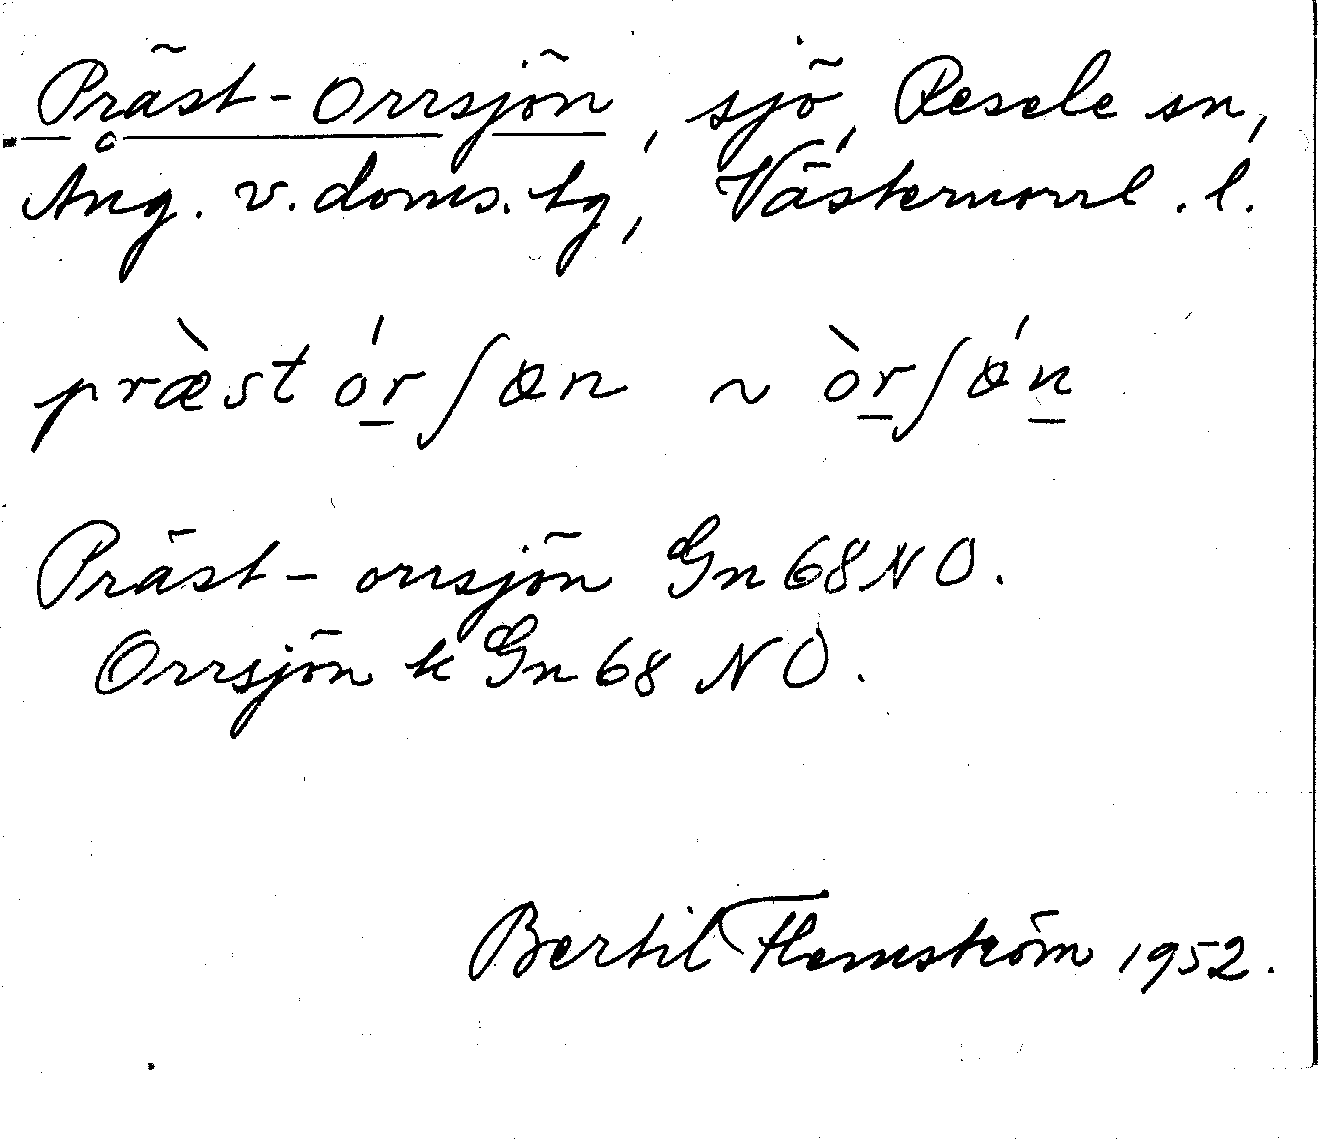 Präst-Orrsjön, sjö, Resele sn,
Ång. v. doms. tg, Västernorrl. l.
præ̀st ór̲ʃøn ~ òr̲ʃǿn̲
Präst-orrsjön Gn 68 NO.
Orrsjön k Gn 68 NO.
Bertil Flemström 1952.